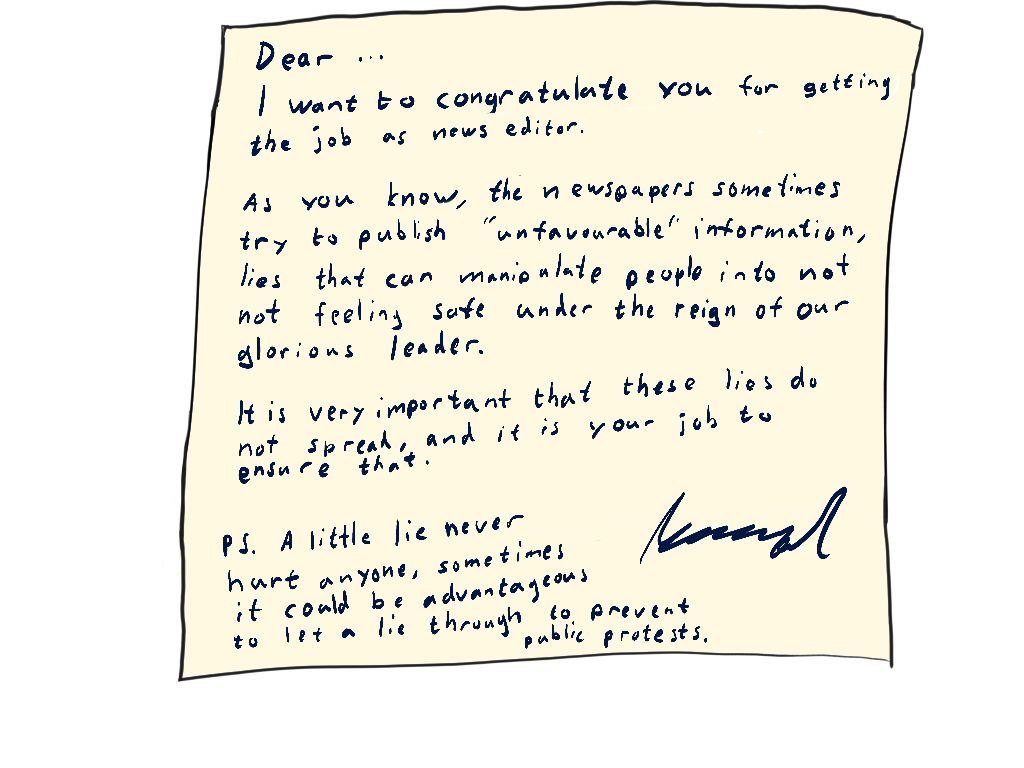 Dear ...
I want to congratulate you for getting
the job as news editor.
As you know, the newspapers sometimes
try to publish "unfavourable" information,
lies that can manipulate people into not
not feeling safe under the reign of our
glorious leader.
It is very important that these lies do
not spread, and it is your job to
ensure that.
PS. A little lie never
hurt anyone, sometimes
it could be advantageous
to let a lie through to prevent
public protests.